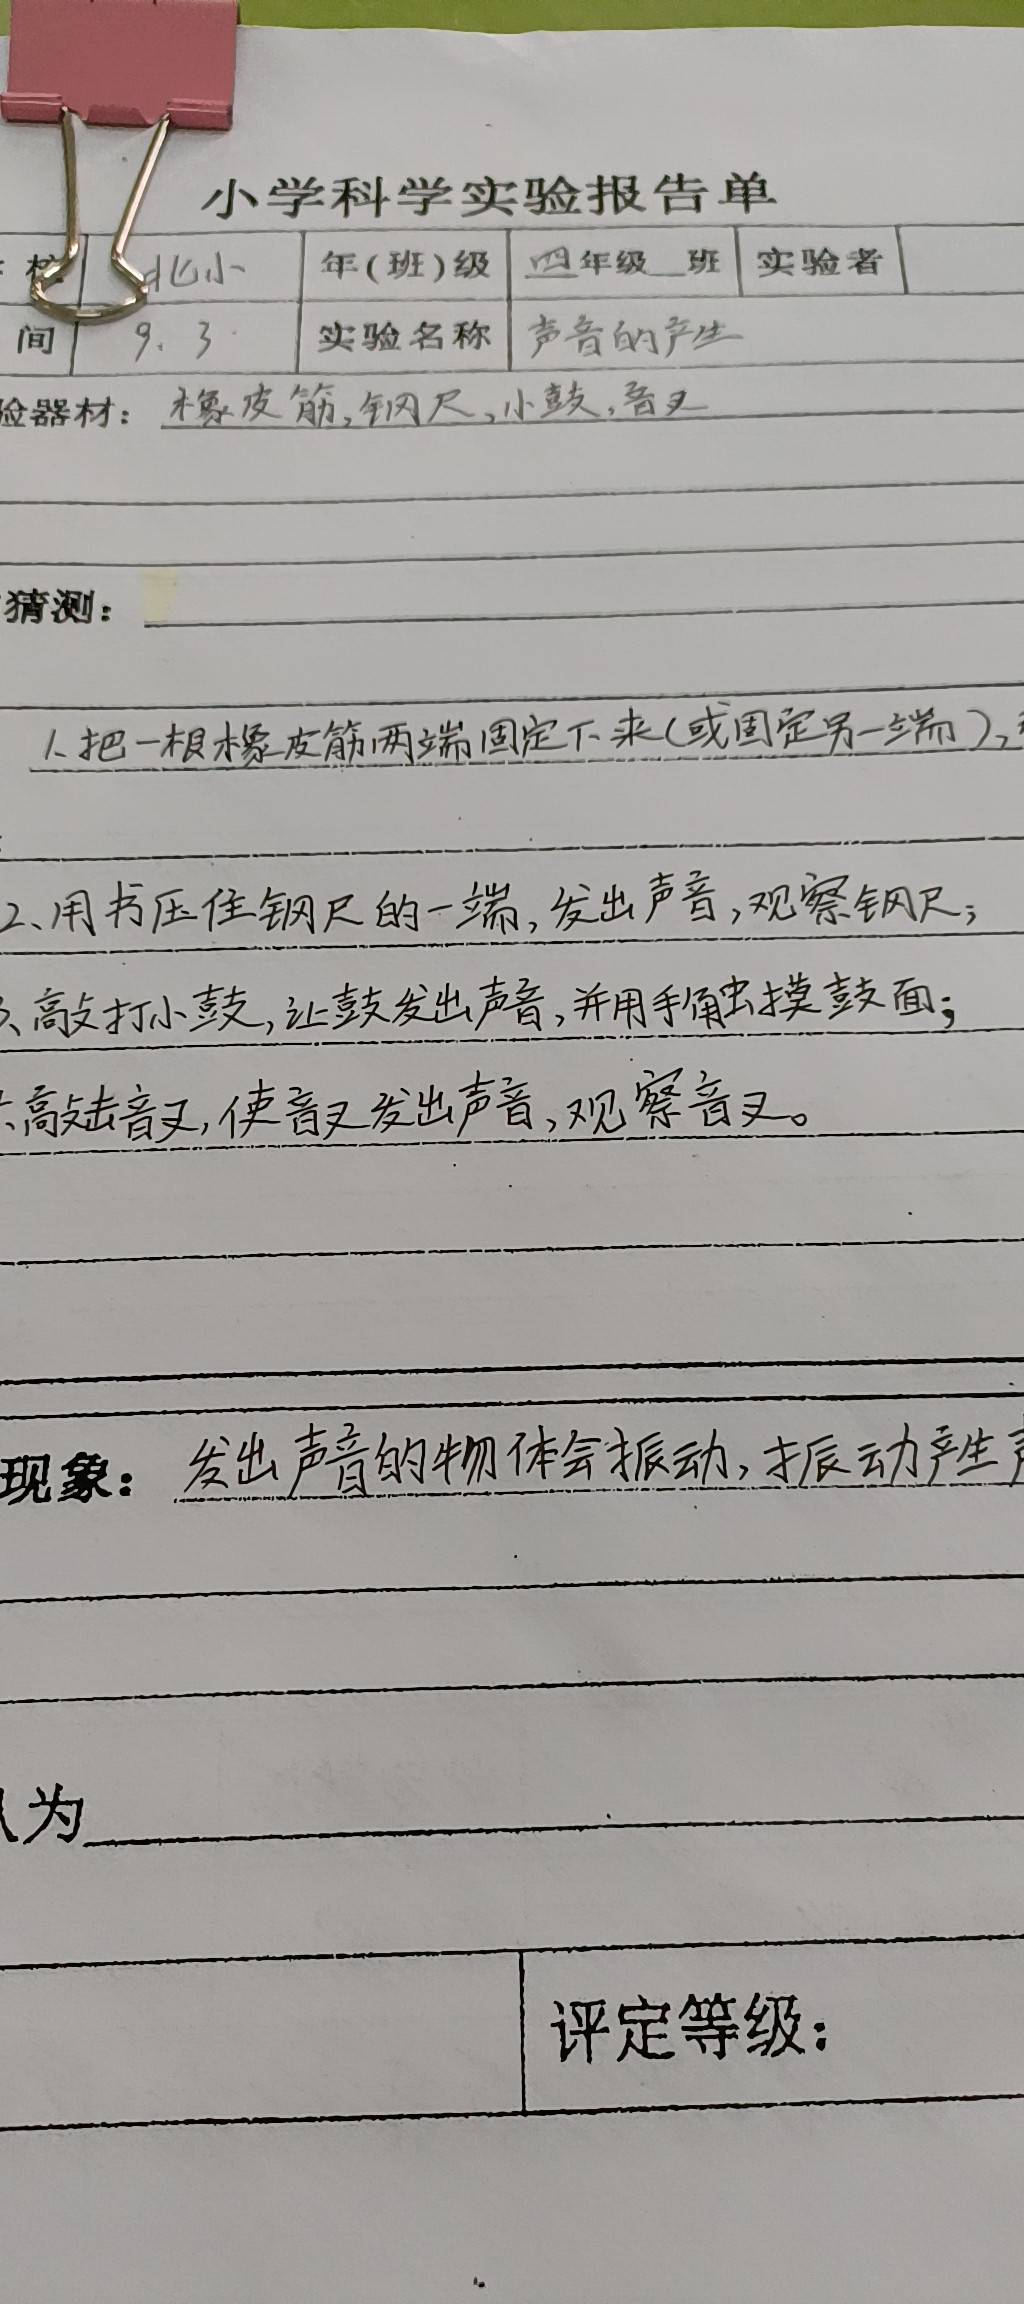 小学科学实验报告单
校 北小 年(班)级 四年级 班 实验者
间 9.3. 实验名称 声音的产生
验器材: 橡皮筋,钢尺,小鼓,音叉
猜测:
1、把一根橡皮筋两端固定下来(或固定另一端),
2、用书压住钢尺的一端,发出声音,观察钢尺;
3、高攴打小鼓,让鼓发出声音,并用手触摸鼓面;
高攴击音叉,使音叉发出声音,观察音叉。
现象: 发出声音的物体会振动,振动产生
认为
评定等级: